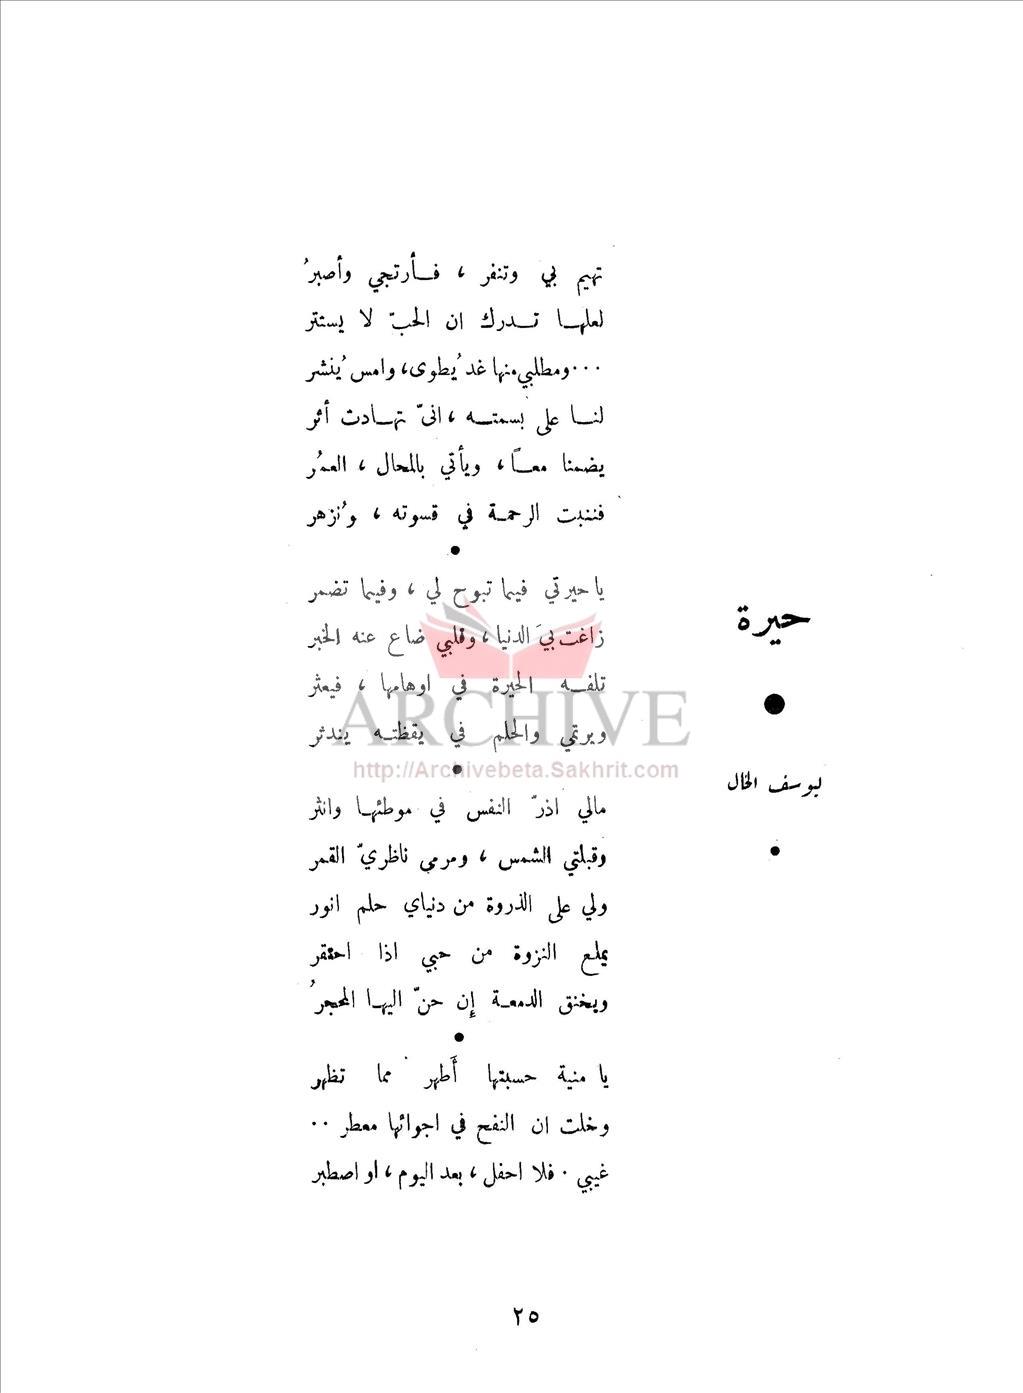 حيرة
ليوسف الخال
تهيم بي وتنفر ، فـأرتجي وأصبرُ
لعلهـا تـدرك ان الحبّ لا يستتر
...ومطلبي منها غد يُطوى، وامس يُنشر
لنـا على بسمتـه ، انىّ تهـادت أثر
يضمنا معـاً ، ويأتي بالمحال ، العمُر
فننبت الرحمـة في قسوته ، ونُزهر
يا حيرتي فيما تبوح لي ، وفيما تضمر
زاغت بيَ الدنيا ، وقلبي ضاع عنه الخبر
تلفـه الحيرة في اوهامها ، فيعثر
ويرتمي والحلم في يقظتـه يندثر
مالي اذرّ النفس في موطئهـا وانثر
وقبلتي الشمس ، ومرمى ناظريّ القمر
ولي على الذروة من دنياي حلم انور
يملع النزوة من حبي اذا احتقر
ويخنق الدمعـة إن حنّ اليهـا المحجرُ
يا منية حسبتها أَطهر مما تظهر
وخلت ان النفح في اجوائها معطر ..
غيبي . فلا احفل ، بعد اليوم ، او اصطبر
٢٥
ARCHIVE
http://Archivebeta.Sakhrit.com